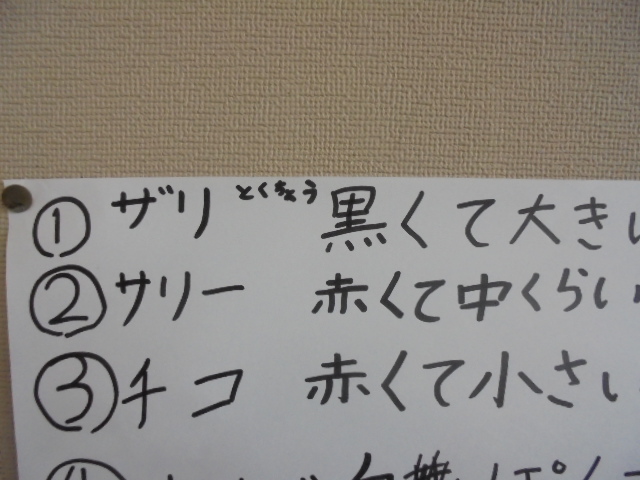 ①ザリ とくちょう 黒くて大きい
②サリー 赤くて中くらい
③チコ 赤くて小さい
④